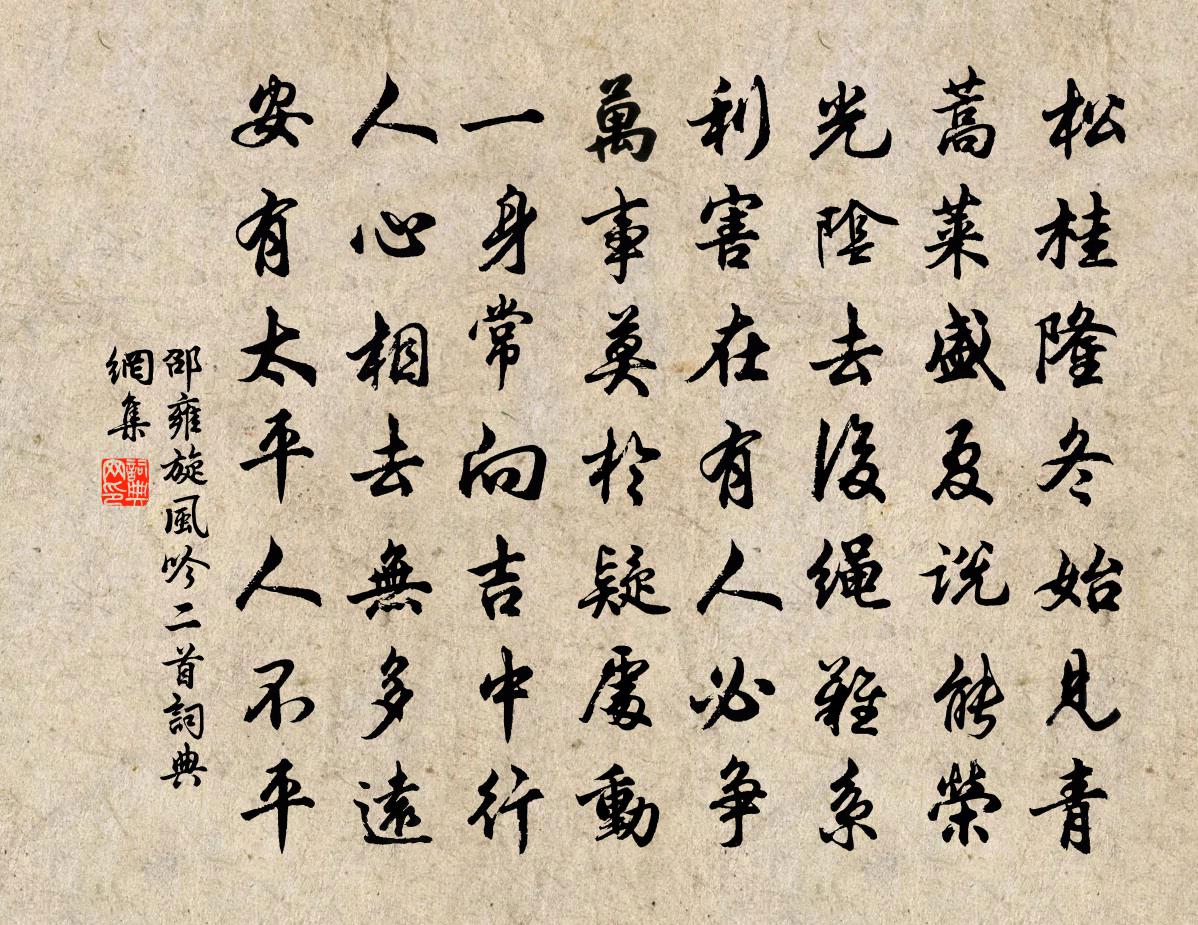 松桂隆冬始見青
蒿萊盛夏説能榮
光陰去後繩難系
利害在有人必爭
萬事莫於疑處動
一身常向吉中行
人心相去無多遠
安有太平人不平
邵雍旋風吟二首詞典
網集
詞典
网印